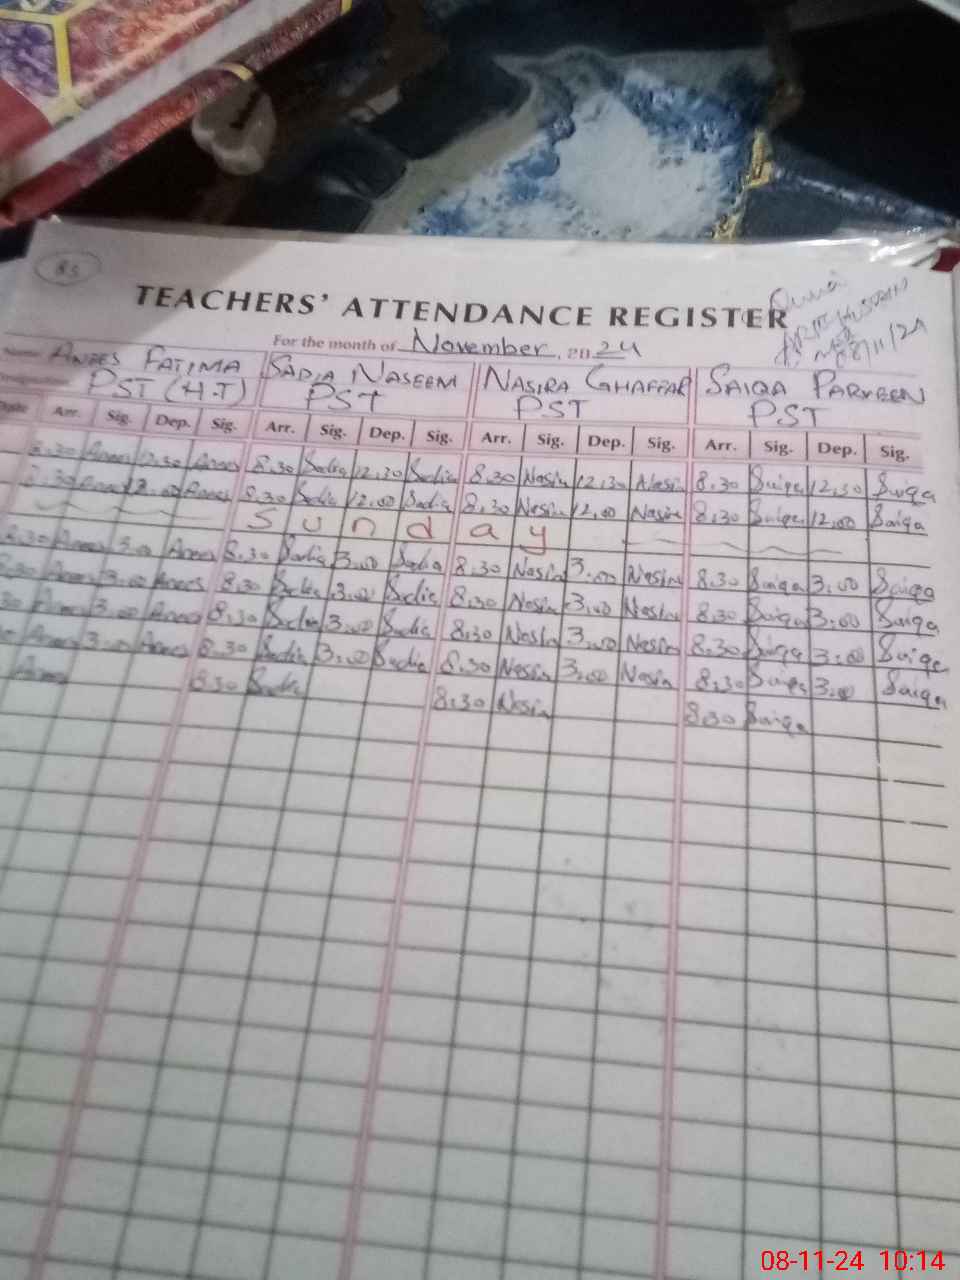 85
TEACHERS' ATTENDANCE REGISTER
For the month of November, 2024
08/11/24
Name Anees Fatima Sadia Naseem Nasira Ghaffar Saiqa Parveen
Designation PST (H.T) PST PST PST
Date Arr. Sig. Dep. Sig. Arr. Sig. Dep. Sig. Arr. Sig. Dep. Sig. Arr. Sig. Dep. Sig.
8.30 Anees 12.30 Anees 8.30 Sadia 12.30 Sadia 8.30 Nasira 12.30 Nasira 8.30 Saiqa 12.30 Saiqa
8.30 Anees 12.00 Anees 8.30 Sadia 12.00 Sadia 8.30 Nasira 12.00 Nasira 8.30 Saiqa 12.00 Saiqa
Sunday
8.30 Anees 3.00 Anees 8.30 Sadia 3.00 Sadia 8.30 Nasira 3.00 Nasira 8.30 Saiqa 3.00 Saiqa
8.30 Anees 3.00 Anees 8.30 Sadia 3.00 Sadia 8.30 Nasira 3.00 Nasira 8.30 Saiqa 3.00 Saiqa
30 Anees 3.00 Anees 8.30 Sadia 3.00 Sadia 8.30 Nasira 3.00 Nasira 8.30 Saiqa 3.00 Saiqa
Anees 3.00 Anees 8.30 Sadia 3.00 Sadia 8.30 Nasira 3.00 Nasira 8.30 Saiqa 3.00 Saiqa
Anees 8.30 Sadia 8.30 Nasira 8.30 Saiqa
08-11-24 10:14